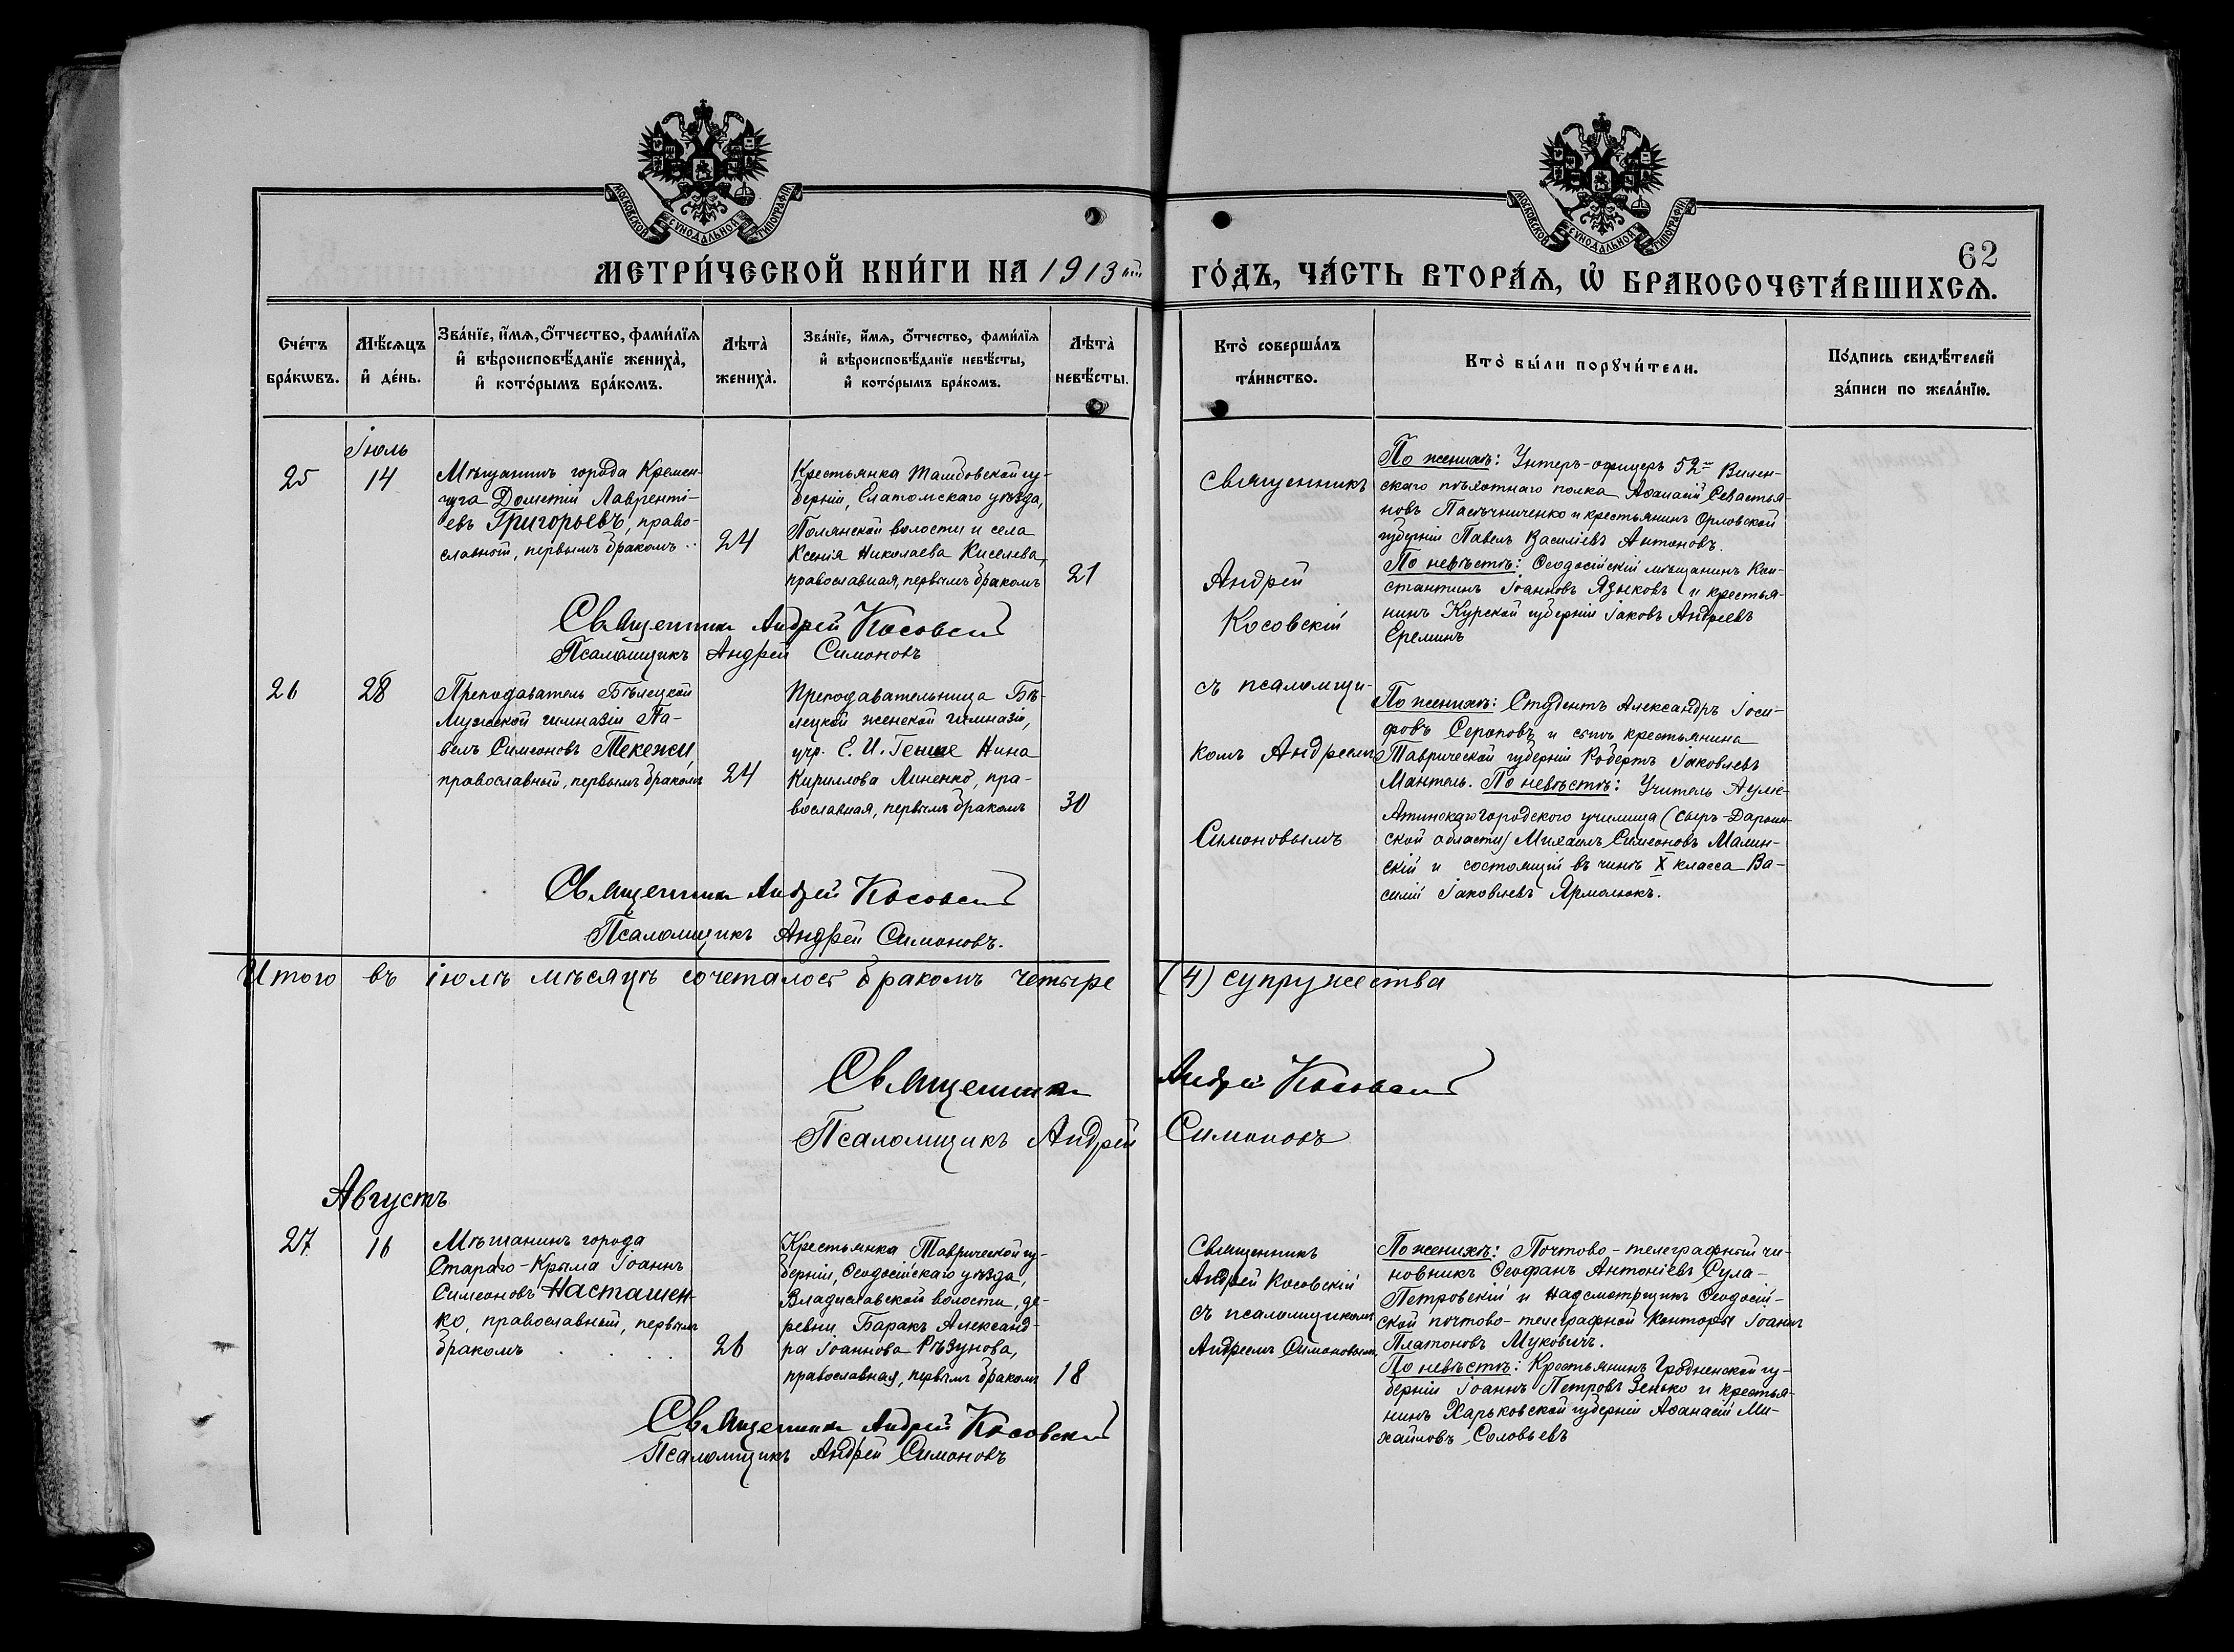 МОСКОВСКОЙ СѴНОДАЛЬНОЙ ТИПОГРАФІИ
МОСКОВСКОЙ СѴНОДАЛЬНОЙ ТИПОГРАФІИ
62
МЕТРИ́ЧЕСКОЙ КНИ́ГИ НА 1913 ый
ГО́ДЪ, ЧА́СТЬ ВТОРА́Ѧ, Ѽ БРАКОСОЧЕТА́ВШИХСѦ.
Сче́тъ бра́кѡвъ.
Мѣ́сяцъ и҆ де́нь.
Зва́нїе, и҆́мѧ, ѻ҆́тчество, фами́лїѧ
и҆ вѣроисповѣ́данїе жениха̀,
и҆ кото́рымъ бра́комъ.
Лѣта̀ жениха̀.
Зва́нїе, и҆́мѧ, ѻ҆́тчество, фами́лїѧ
и҆ вѣроисповѣ́данїе невѣ́сты,
и҆ кото́рымъ бра́комъ.
Лѣта̀ невѣ́сты.
Кто̀ соверша́лъ
та́инство.
Кто̀ бы́ли порꙋчи́тели.
По́дпись свидѣ́телей
за́писи по жела́нїю.
Іюль
25
14
Мѣщанинъ города Кремен-
чуга Дометій Лавренті-
евъ Григорьевъ, право-
славный, первымъ бракомъ ..
24
Крестьянка Тамбовской гу-
берніи, Елатомскаго уѣзда,
Полянской волости и села
Ксенія Николаева Киселева,
православная, первымъ бракомъ
21
Священникъ
Андрей
Косовскій
съ псаломщи-
комъ Андреемъ
Симоновымъ
По женихѣ: Унтеръ-офицеръ 52го Вилен-
скаго пѣхотнаго полка Аѳанасій Севастья-
новъ Пасѣчниченко и крестьянинъ Орловской
губерніи Павелъ Василіевъ Антоновъ.
По невѣстѣ: Ѳеодосійскій мѣщанинъ Кон-
стантинъ Іоанновъ Языковъ и крестья-
нинъ Курской губерніи Іаковъ Андреевъ
Ереминъ
Священникъ Андрей Косовскій
Псаломщикъ Андрей Симоновъ
26
28
Преподаватель Бѣлецкой
Мужской гимназіи Па-
велъ Симеоновъ Текежи
православный, первымъ бракомъ
24
Преподавательница Бѣ-
лецкой женской гимназіи,
учр. Е. И. Нина
Кириллова Линенко, пра-
вославная, первымъ бракомъ
30
По женихѣ: Студентъ Александръ Іоси-
фовъ Сероповъ и сынъ крестьянина
Таврической губерніи Робертъ Іаковлевъ
Мантель. По невѣстѣ: Учитель Ауліе-
Атинскаго городского училища (Сыръ-Дарьин-
ской области) Михаилъ Симеоновъ Малин-
скій и состоящій въ чинѣ X класса Ва-
силій Іаковлевъ Ярмолюкъ.
Священникъ Андрей Косовскій
Псаломщикъ Андрей Симоновъ.
Итого въ іюлѣ мѣсяцѣ сочеталось бракомъ четыре (4) супружества
Священникъ Андрей Косовскій
Псаломщикъ Андрей Симоновъ
Августъ
27
16
Мѣщанинъ города
Стараго-Крыма Іоаннъ
Симеоновъ Насташен-
ко, православный, первымъ
бракомъ . . . .
26
Крестьянка Таврической гу-
берніи, Ѳеодосійскаго уѣзда,
Владиславской волости, де-
ревни Баракъ Александ-
ра Іоаннова Рѣзунова,
православная, первымъ бракомъ
18
Священникъ
Андрей Косовскій
съ псаломщикомъ
Андреемъ Симоновымъ
По женихѣ: Почтово-телеграфный чи-
новникъ Ѳеофанъ Антоніевъ Сула-
Петровскій и надсмотрщикъ Ѳеодосій-
ской почтово-телеграфной конторы Іоаннъ
Платоновъ Муковичъ.
По невѣстѣ: Крестьянинъ Гродненской гу-
берніи Іоаннъ Петровъ Зенько и крестья-
нинъ Харьковской губерніи Аѳанасій Ми-
хайловъ Соловьевъ
Священникъ Андрей Косовскій
Псаломщикъ Андрей Симоновъ